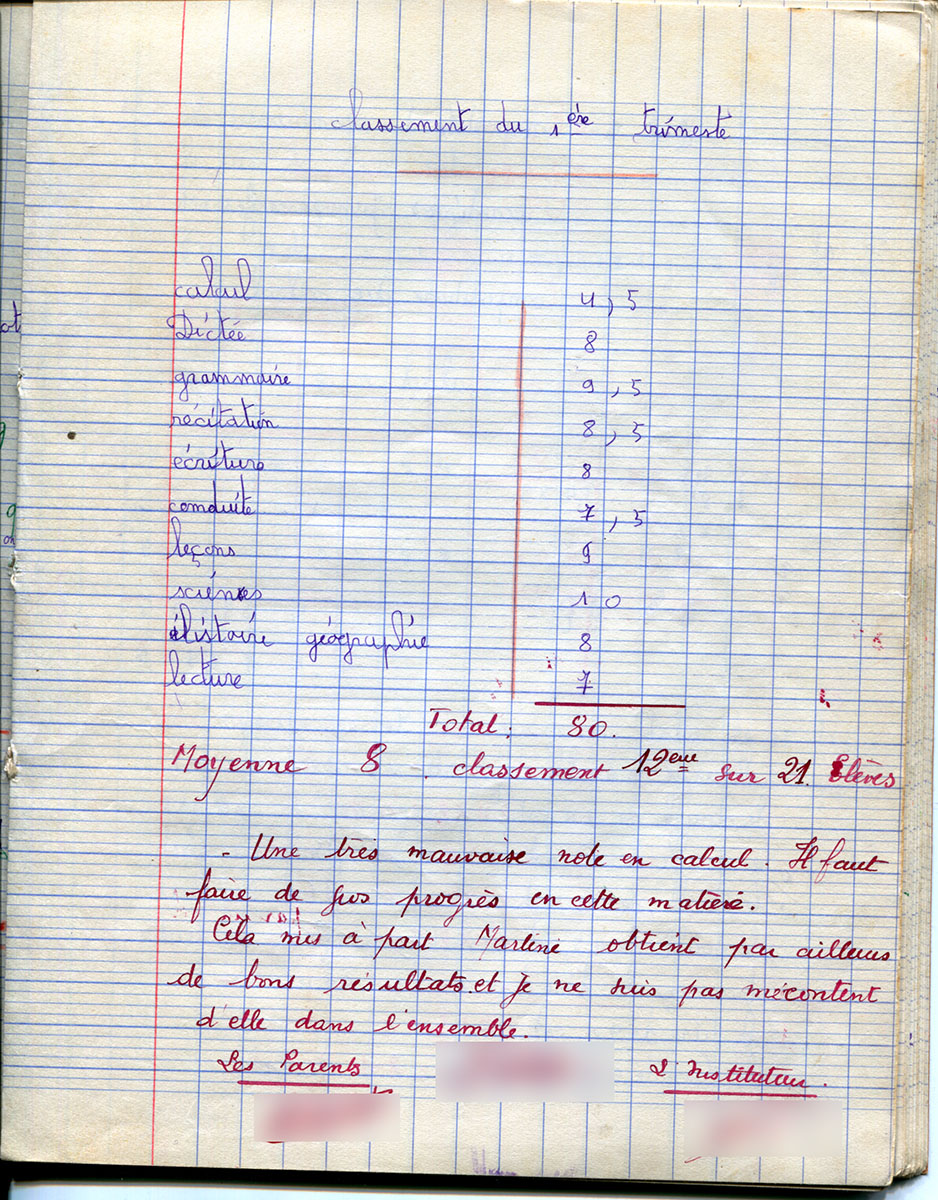 classement du 1ère trimestre
calcul 4,5
Dictée 8
grammaire 9,5
récitation 8,5
écriture 8
conduite 7,5
leçons 9
sciences 10
histoire géographie 8
lecture 7
Total: 80.
Moyenne 8. classement 12ème sur 21. Elèves
- Une très mauvaise note en calcul. Il faut
faire de gros progrès en cette matière.
Cela mis à part Martine obtient par ailleurs
de bons résultats et je ne suis pas mécontent
d'elle dans l'ensemble.
Les Parents L'Instituteur.